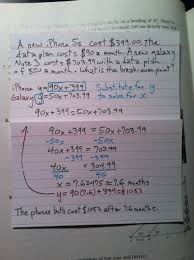 A new iPhone 5s cost $399.00. The
data plan cost $90 a month. A new galaxy
Note 3 cost $703.99 with a data plan
of $50 a month. What is the break-even point?
iPhone y=90x+399 Substitute for y
Galaxy y=50x+703.99 to solve for x
90x+399=50x+703.99
90x+399=50x+703.99
-50x -50x
40x+399=703.99
-399 -399
40x = 304.99
40 40
x = 7.62475 ≈ 7.6 months
y = 90(7.6)+399=$1083
The phones both cost $1083 after 7.6 months.